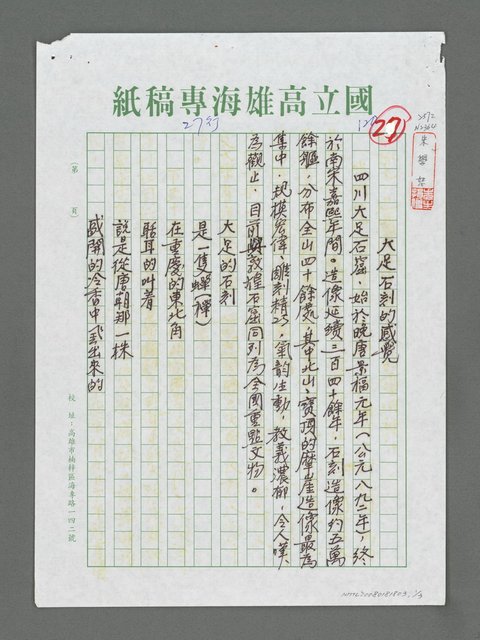 國立高雄海專稿紙
27行
27
朱學恕
大足石刻的感覺
四川大足石窟，始於晚唐景福元年(公元八九二年)，終
於南宋嘉熙年間。造像延續二百四十餘年，石刻造像約五萬
餘軀，分布全山四十餘處，其中北山、寶頂的摩崖造像最為
集中，規模宏偉，雕刻精巧，氣韵生動，教義濃郁，令人嘆
為觀止，目前與敦煌石窟同列為全國重點文物。
大足的石刻
是一隻蟬(禪)
在重慶的東北角
聒耳的叫著
說是從唐朝那一株
盛開的冷香中飛出來的
(第　頁)
校址：高雄市楠梓區海專路一四二號
NMTL20080181803 1/3